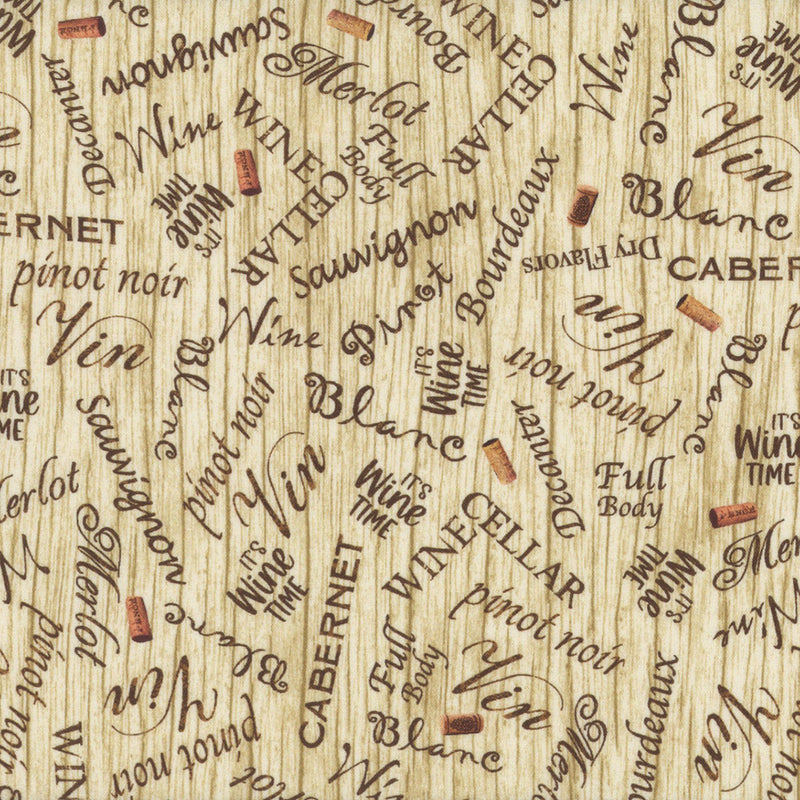 Wine
Sauvignon
Pinot
WINE
CELLAR
Wine
Blanc
IT'S
Wine
TIME
Decanter
Wine
Merlot
WINE
CELLAR
Full
Body
Vin
IT'S
Wine
TIME
Blanc
ERNET
Sauvignon
Bourdeaux
Dry Flavors
CABER
pinot noir
Pinot
Vin
Wine
Vin
Blanc
IT'S
Wine
TIME
pinot noir
Blanc
IT'S
ne
ME
Blanc
Sauvignon
pinot noir
Decanter
IT'S
Wine
TIME
Vin
Full
Body
erlot
IT'S
Wine
TIME
WINE
CELLAR
Merlot
Mer
IT'S
Wine
TIME
CABERNET
IT'S
Wine
TIME
pinot noir
Wine
Blanc
pinot noir
Full
Body
Vin
Vin
Bourdeaux
Vin
Blanc
Merlot
pinot noir
WIN
erlot